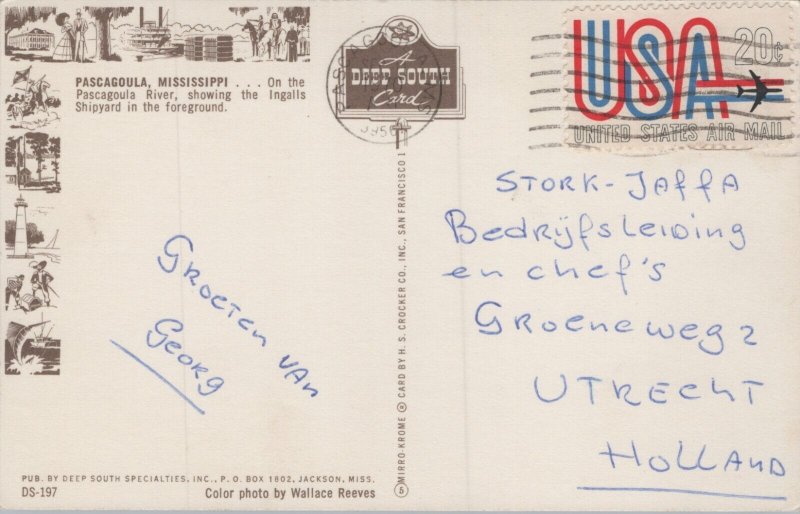 PASCAGOULA, MISSISSIPPI . . . On the
Pascagoula River, showing the Ingalls
Shipyard in the foreground.
A
DEEP SOUTH
Card
USA 20c
UNITED STATES AIR MAIL
STORK-JAFFA
Bedrijfsleiding
en chef's
Groeneweg 2
UTRECHT
HOLLAND
GROETEN VAN
GEORG
MIRRO-KROME ® CARD BY H. S. CROCKER CO., INC., SAN FRANCISCO 1
PUB. BY DEEP SOUTH SPECIALTIES, INC., P. O. BOX 1602, JACKSON, MISS.
DS-197
Color photo by Wallace Reeves
5